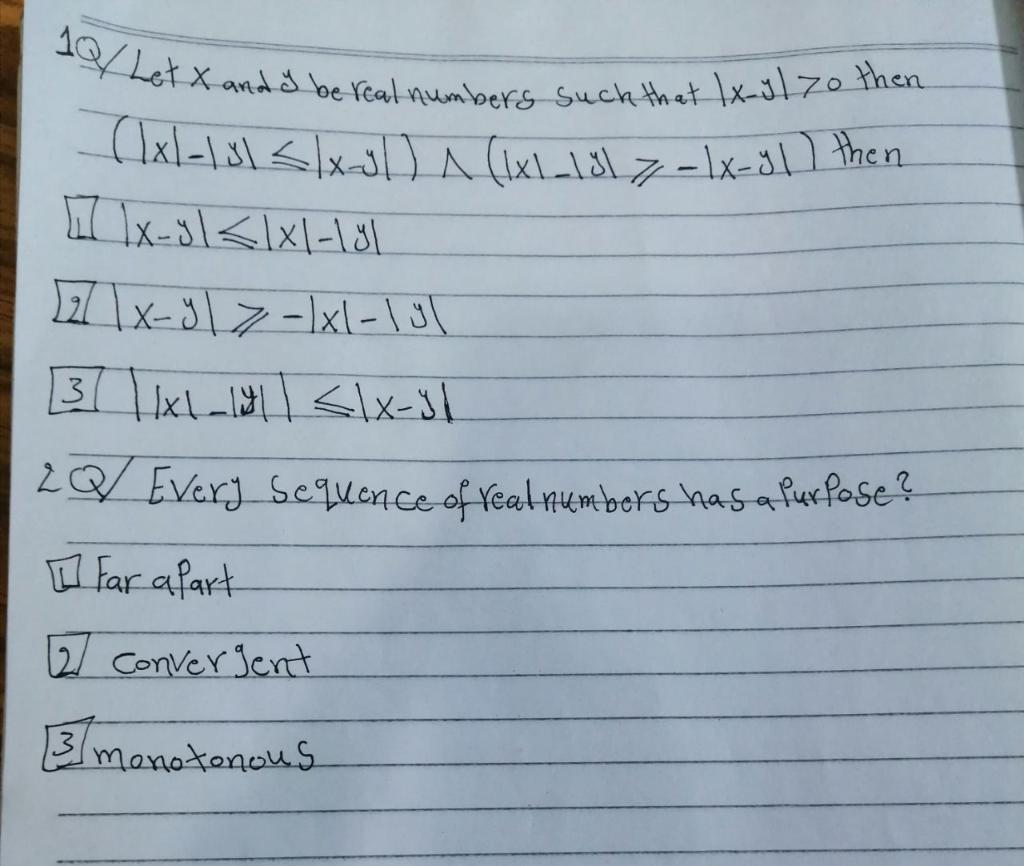 1Q/ Let x and y be real numbers such that |x-y|>0 then
(|x|-|y| ≤ |x-y|) ∧ (|x|-|y| ≥ -|x-y|) then
1 |x-y| ≤ |x|-|y|
2 |x-y| ≥ -|x|-|y|
3 ||x|-|y|| ≤ |x-y|
2Q/ Every sequence of real numbers has a Purpose?
1 Far apart
2 convergent
3 monotonous